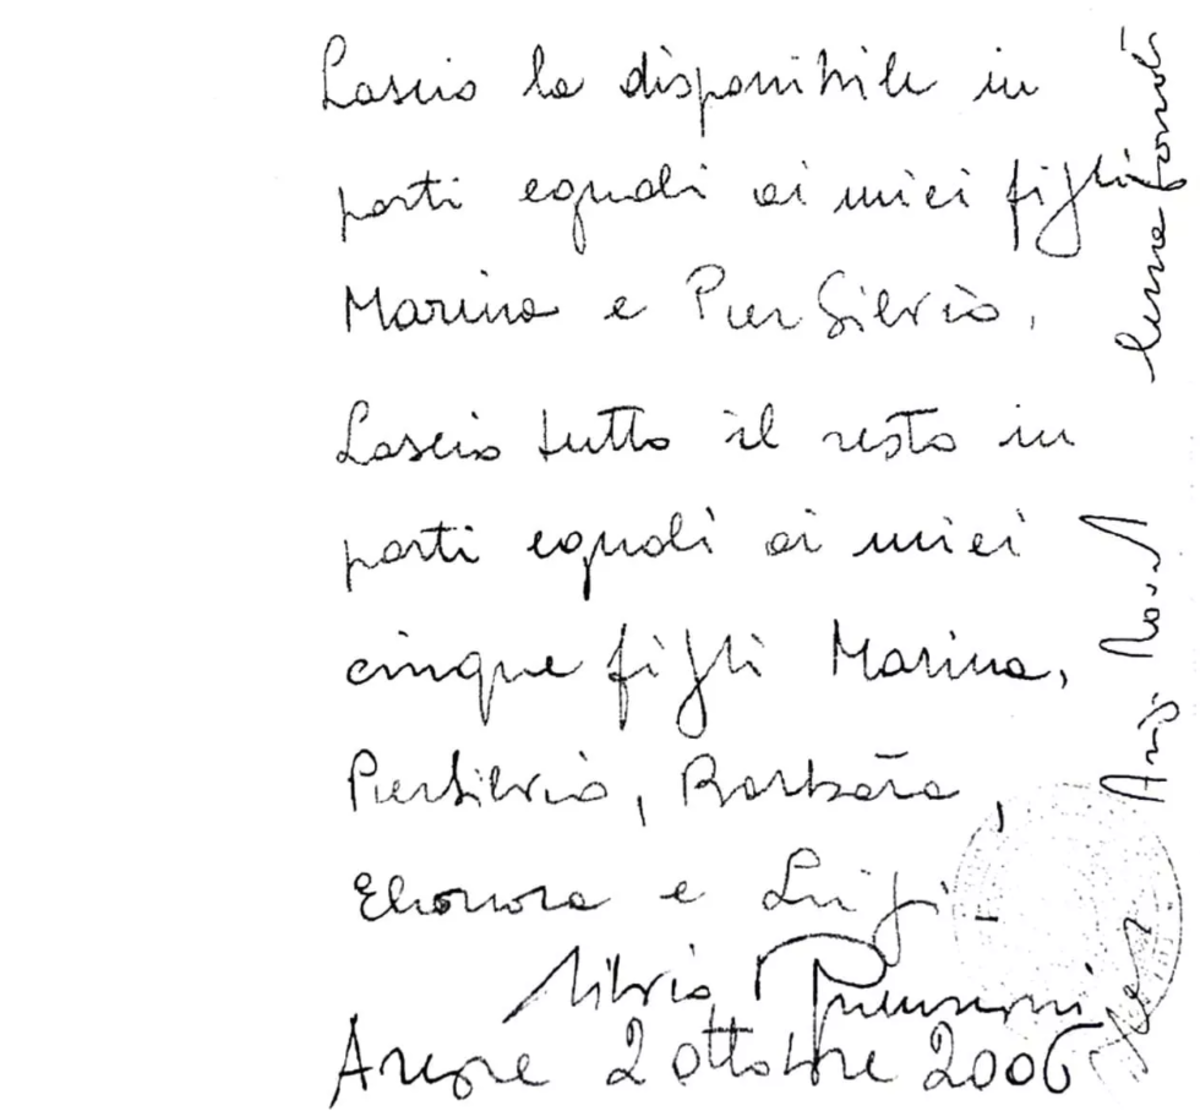 Lascio la disponibile in
parti eguali ai miei figli
Marina e Pier Silvio.
Lascio tutto il resto in
parti eguali ai miei
cinque figli Marina,
PierSilvio, Barbara,
Eleonora e Luigi.
Silvio Berlusconi
Arcore 2 ottobre 2006